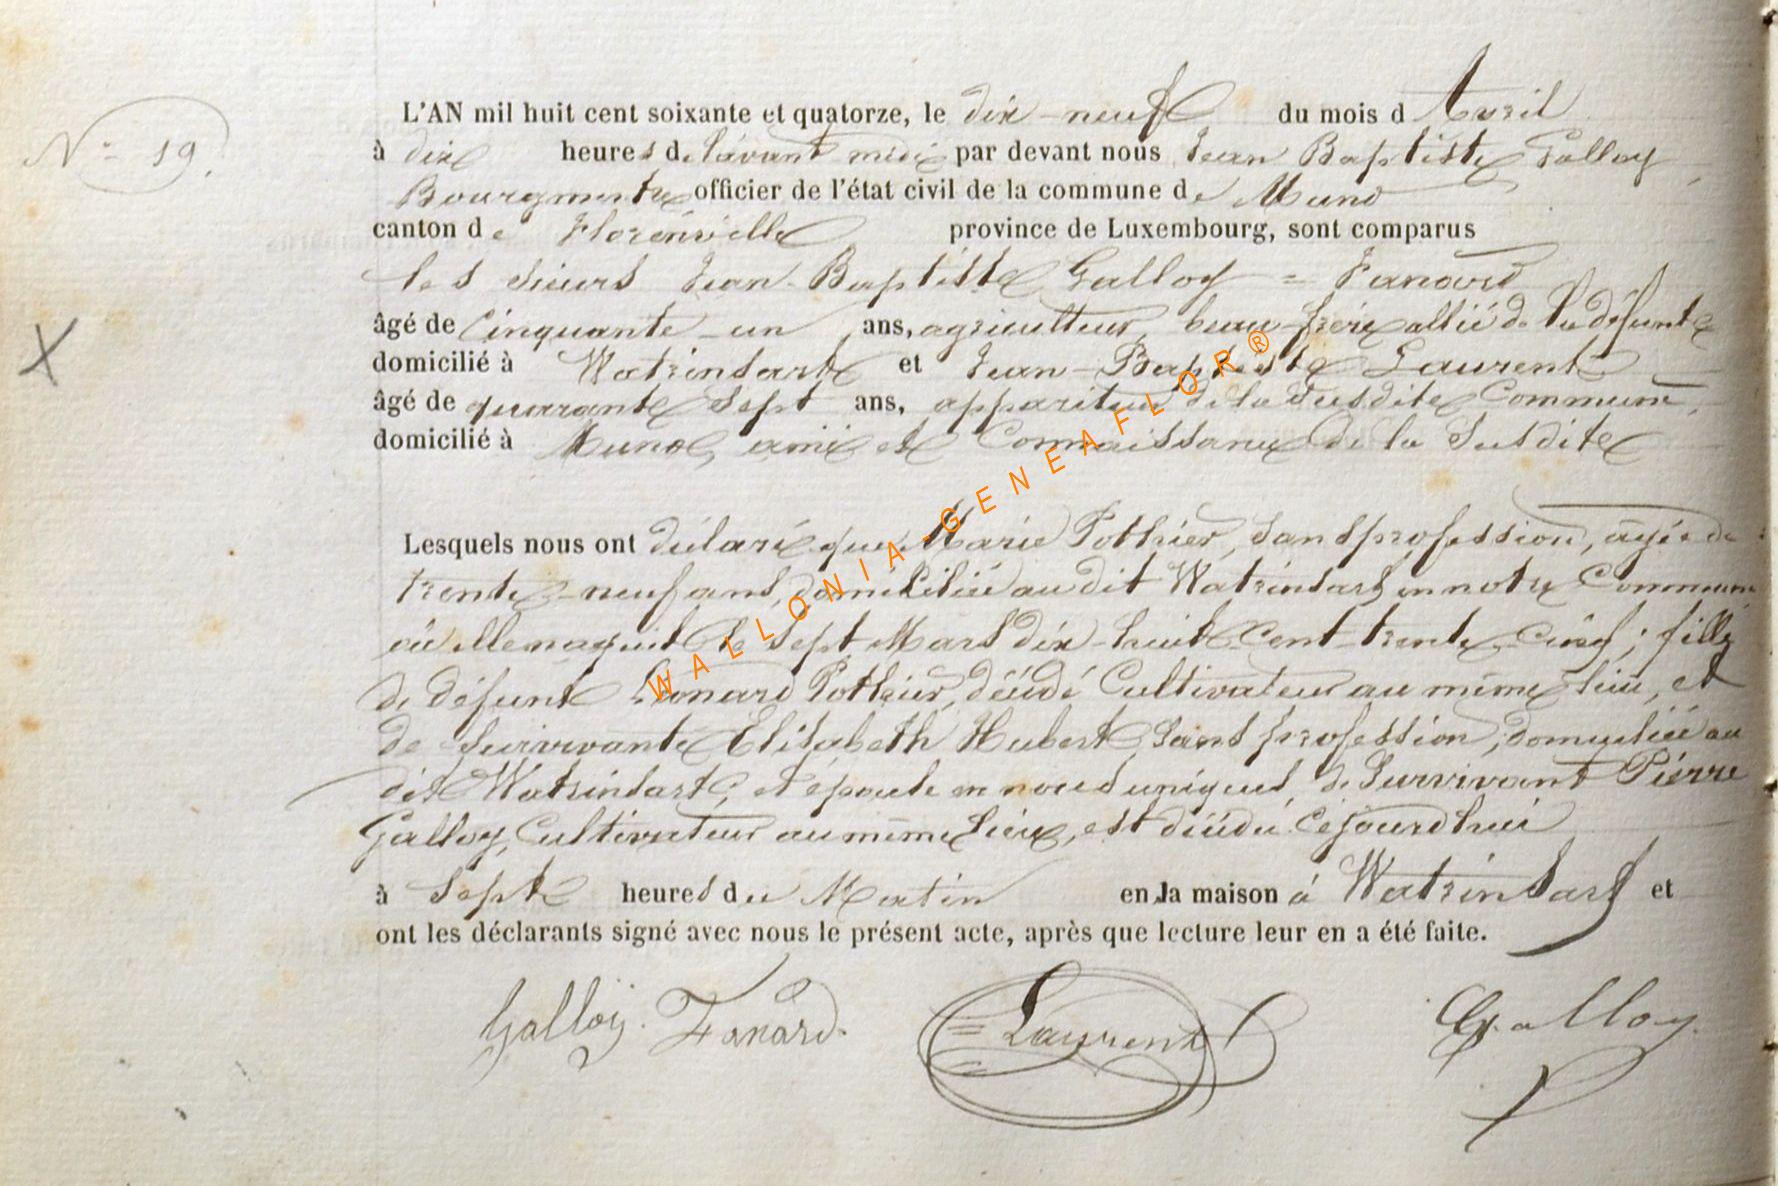 N° 19.
L'AN mil huit cent soixante et quatorze, le dix-neuf du mois d'Avril
à dix heures de l'avant midi par devant nous Jean Baptiste Galloy,
Bourgmestre officier de l'état civil de la commune de Muno
canton de Florenville province de Luxembourg, sont comparus
les sieurs Jean-Baptiste Galloy = Fanard
âgé de Cinquante-un ans, agriculteur, beau-frère allié de la défunte
domicilié à Watrinsart et Jean-Baptiste Laurent
âgé de quarante Sept ans, appariteur de la Susdite Commune,
domicilié à Muno, ami et Connaissance de la Susdite
Lesquels nous ont déclaré que Marie Pothier, sans profession, agée de
trente-neuf ans, domiciliée au dit Watrinsart en notre Commune
où elle naquit le Sept Mars dix-huit-Cent-trente-cinq; fille
de défunt Léonard Pothier, décédé Cultivateur au même lieu, et
de Survivante Elisabeth Hubert, Sans profession, domiciliée au
dit Watrinsart; et épouse en noces uniques de Survivant Pierre
Galloy, Cultivateur au même Lieu, est décédée Cejourd'hui
à Sept heures du Matin en la maison à Watrinsart et
ont les déclarants signé avec nous le présent acte, après que lecture leur en a été faite.
Galloy-Fanard. Laurent Galloy
WALLONIA-GENEAFLOR®